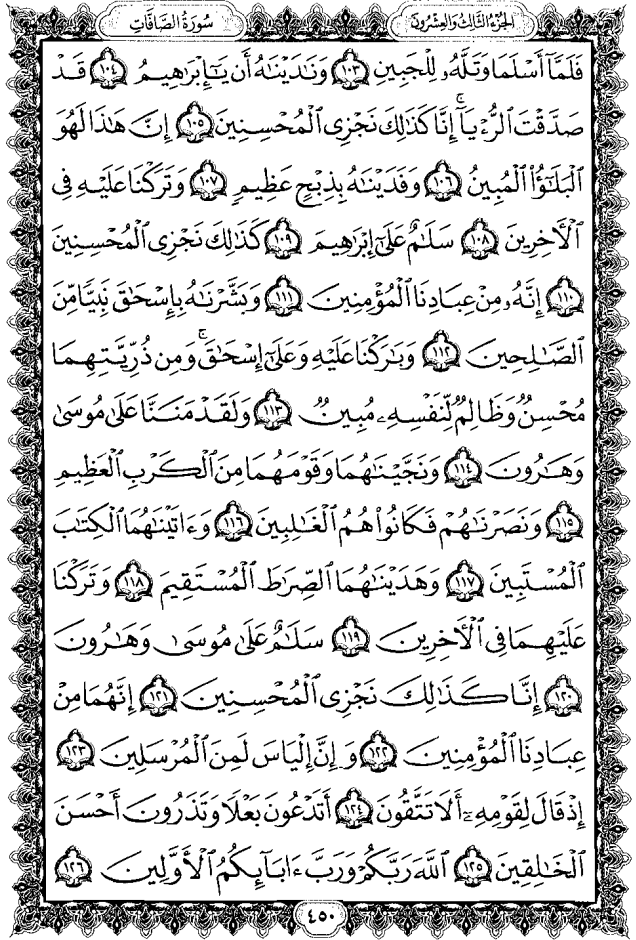 الجزء الثالث والعشرون سورة الصافات
فَلَمَّآ أَسْلَمَا وَتَلَّهُۥ لِلْجَبِينِ ١٠٣ وَنَٰدَيْنَٰهُ أَن يَٰٓإِبْرَٰهِيمُ ١٠٤ قَدْ
صَدَّقْتَ ٱلرُّءْيَآۚ إِنَّا كَذَٰلِكَ نَجْزِى ٱلْمُحْسِنِينَ ١٠٥ إِنَّ هَٰذَا لَهُوَ
ٱلْبَلَٰٓؤُا۟ ٱلْمُبِينُ ١٠٦ وَفَدَيْنَٰهُ بِذِبْحٍ عَظِيمٍ ١٠٧ وَتَرَكْنَا عَلَيْهِ فِى
ٱلْءَاخِرِينَ ١٠٨ سَلَٰمٌ عَلَىٰٓ إِبْرَٰهِيمَ ١٠٩ كَذَٰلِكَ نَجْزِى ٱلْمُحْسِنِينَ
١١٠ إِنَّهُۥ مِنْ عِبَادِنَا ٱلْمُؤْمِنِينَ ١١١ وَبَشَّرْنَٰهُ بِإِسْحَٰقَ نَبِيًّا مِّنَ
ٱلصَّٰلِحِينَ ١١٢ وَبَٰرَكْنَا عَلَيْهِ وَعَلَىٰٓ إِسْحَٰقَۚ وَمِن ذُرِّيَّتِهِمَا
مُحْسِنٌ وَظَالِمٌ لِّنَفْسِهِۦ مُبِينٌ ١١٣ وَلَقَدْ مَنَنَّا عَلَىٰ مُوسَىٰ
وَهَٰرُونَ ١١٤ وَنَجَّيْنَٰهُمَا وَقَوْمَهُمَا مِنَ ٱلْكَرْبِ ٱلْعَظِيمِ
١١٥ وَنَصَرْنَٰهُمْ فَكَانُوا۟ هُمُ ٱلْغَٰلِبِينَ ١١٦ وَءَاتَيْنَٰهُمَا ٱلْكِتَٰبَ
ٱلْمُسْتَبِينَ ١١٧ وَهَدَيْنَٰهُمَا ٱلصِّرَٰطَ ٱلْمُسْتَقِيمَ ١١٨ وَتَرَكْنَا
عَلَيْهِمَا فِى ٱلْءَاخِرِينَ ١١٩ سَلَٰمٌ عَلَىٰ مُوسَىٰ وَهَٰرُونَ
١٢٠ إِنَّا كَذَٰلِكَ نَجْزِى ٱلْمُحْسِنِينَ ١٢١ إِنَّهُمَا مِنْ
عِبَادِنَا ٱلْمُؤْمِنِينَ ١٢٢ وَإِنَّ إِلْيَاسَ لَمِنَ ٱلْمُرْسَلِينَ ١٢٣
إِذْ قَالَ لِقَوْمِهِۦٓ أَلَا تَتَّقُونَ ١٢٤ أَتَدْعُونَ بَعْلًا وَتَذَرُونَ أَحْسَنَ
ٱلْخَٰلِقِينَ ١٢٥ ٱللَّهَ رَبَّكُمْ وَرَبَّ ءَابَآئِكُمُ ٱلْأَوَّلِينَ ١٢٦
٤٥٠